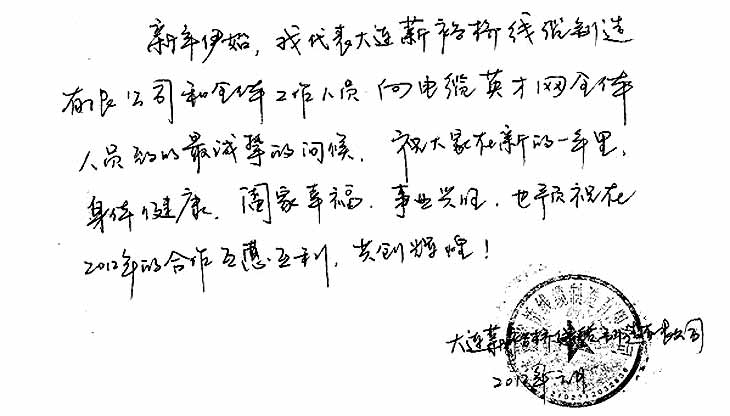 新年伊始，我代表大连薪裕桥线缆制造
有限公司和全体工作人员向电缆英才网全体
人员致以最诚挚的问候。祝大家在新的一年里，
身体健康，阖家幸福，事业兴旺，也预祝在
2012年的合作互惠互利，共创辉煌！
大连薪裕桥线缆制造有限公司
2012年元月